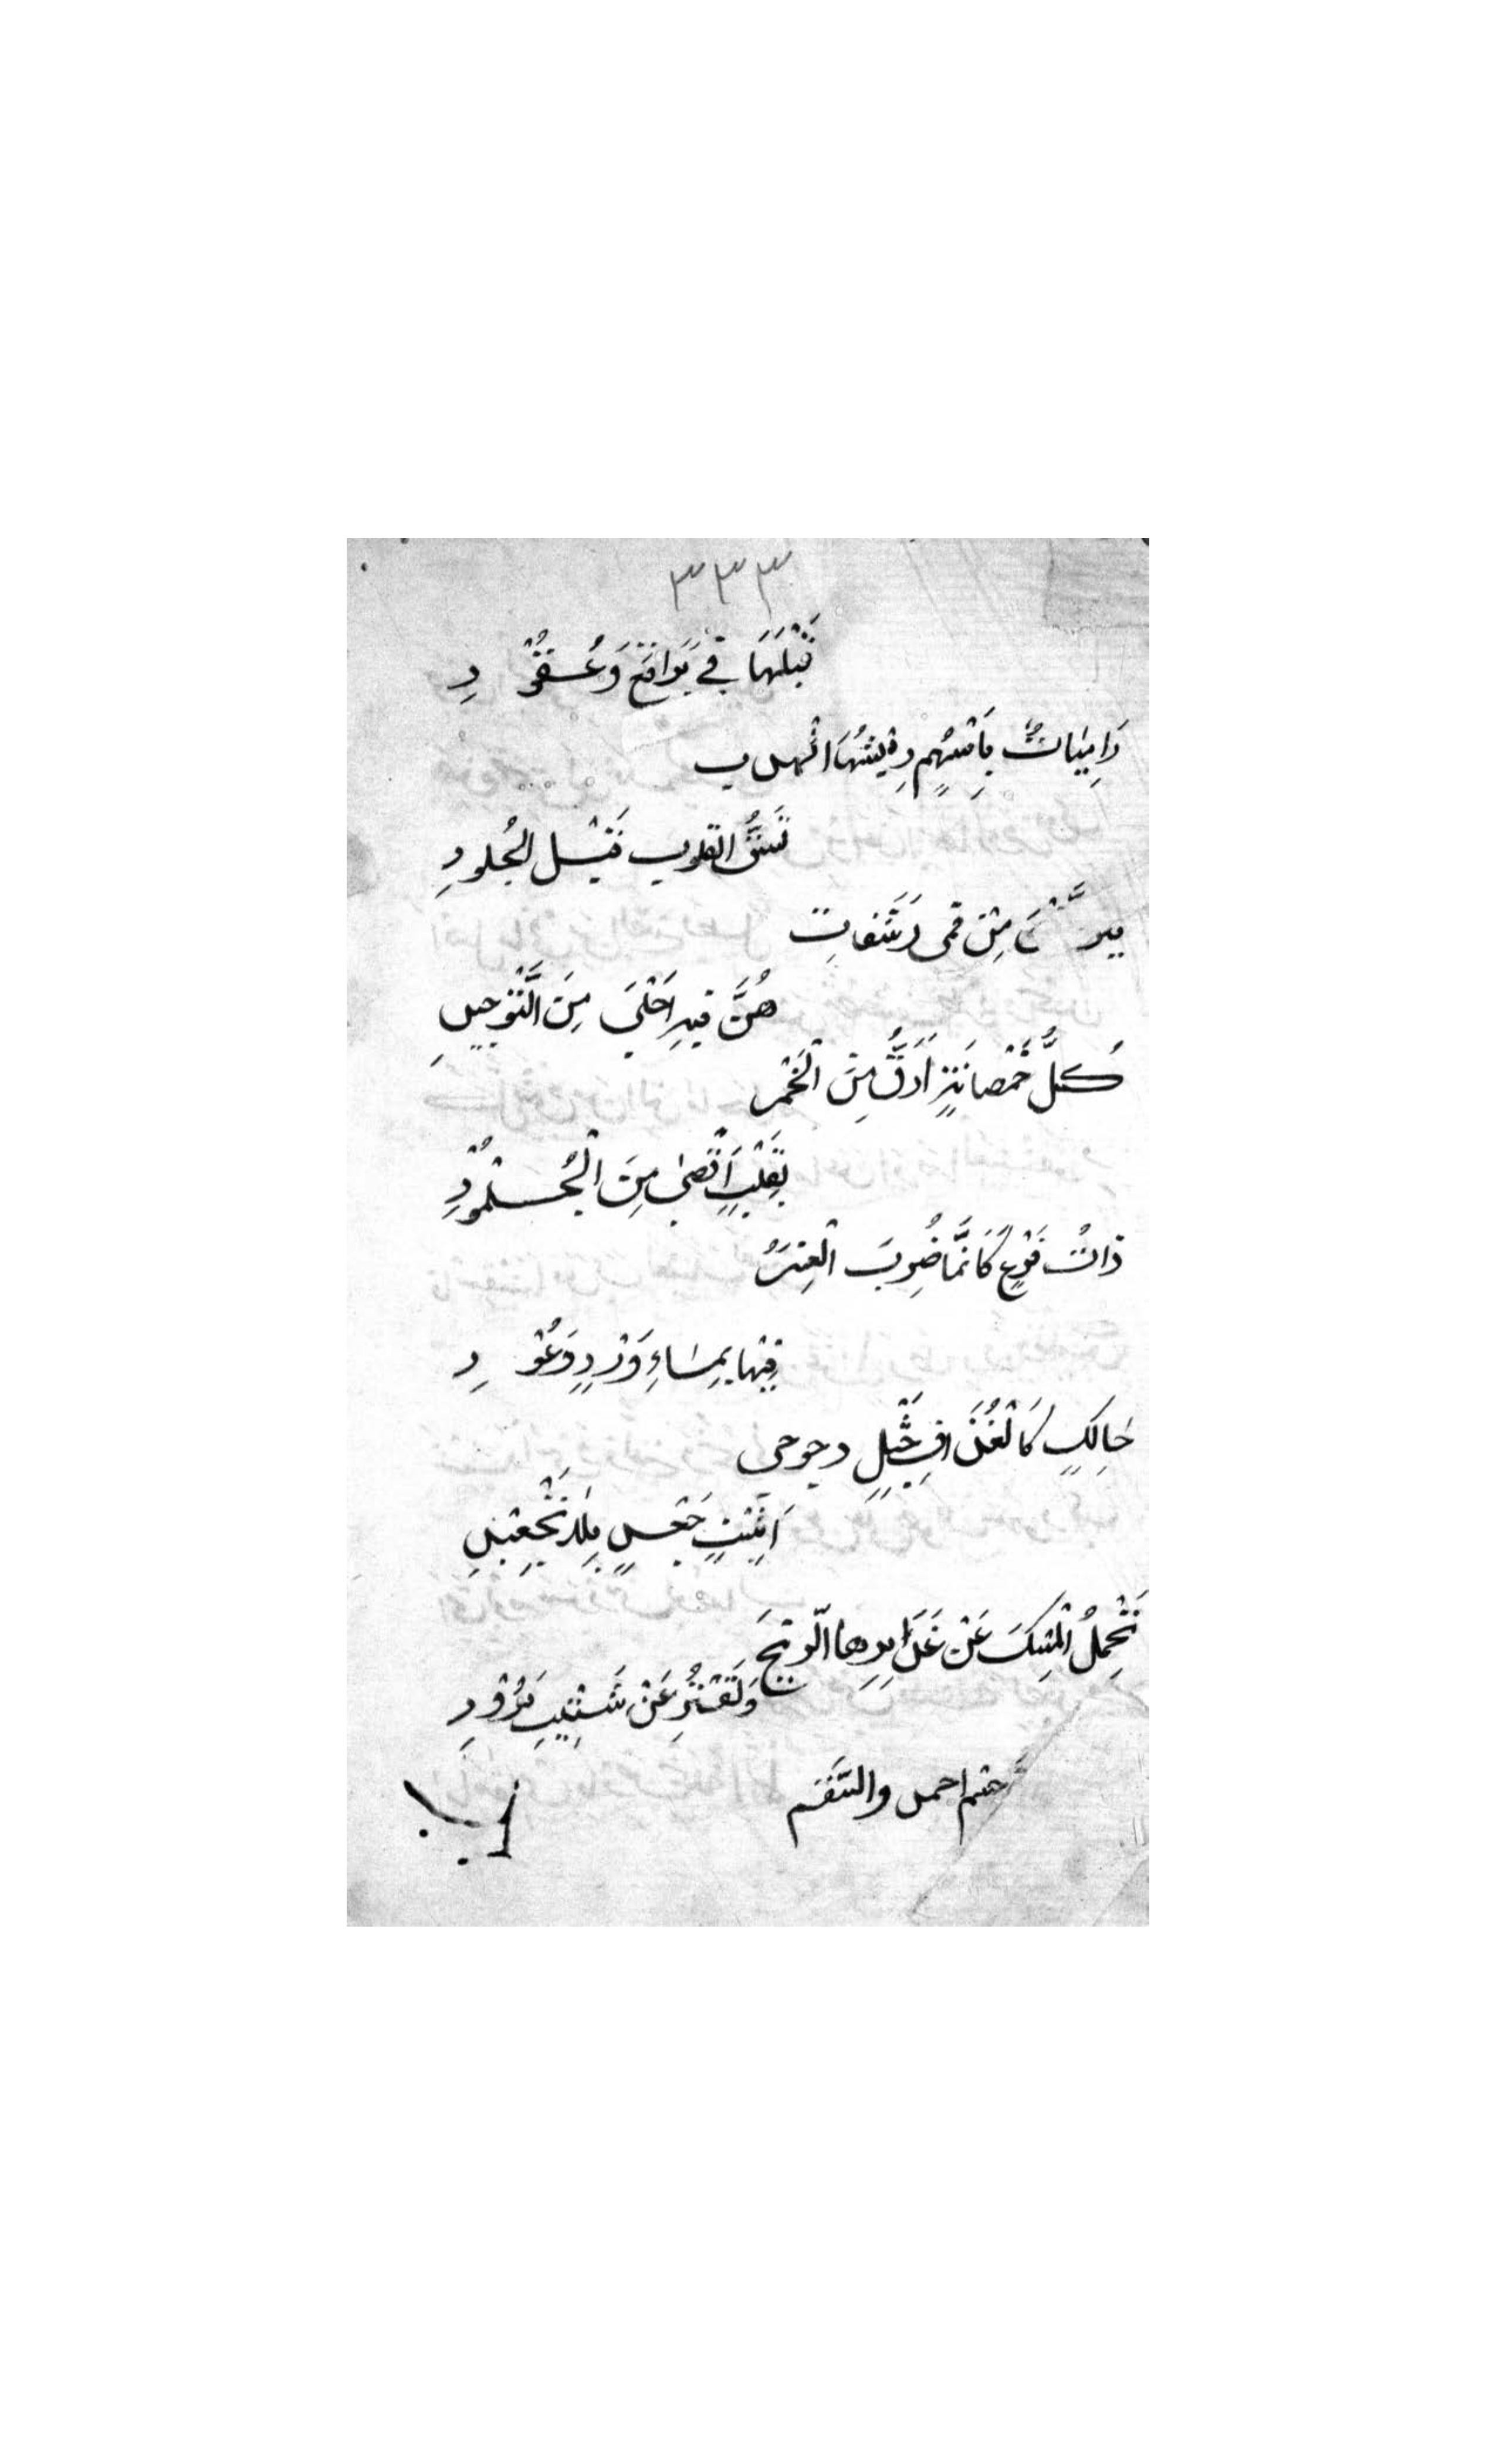 ٣٣٣
قَبْلَهَا فِي بَرَاقِعَ وَعُقُوْدِ
رَامِيَاتٌ بِأَسْهُمٍ رِيْشُهَا الْهدب
تَشُقُّ القلوب قَبْل الجُلودِ
يترَشَّفْنَ مِنْ فمى رَشَفات
هُنَّ فيهِ اَحْلَى مِنَ التَّوْحيدِ
كُلُّ خُمْصَانَةٍ اَرَقُّ مِنَ الْخَمْر
بِقَلْبٍ اَقْسٰى مِنَ الْجُلْمُوْدِ
ذاتُ فَرْعٍ كَاَنَّمَا ضُرِبَ الْعنبَرُ
فِيْهَا بِمَاءِ وَرْدٍ وَعُوْدِ
حَالِكٍ كَالْغُدَافِ جَثْلٍ دجوجى
اَثِيْثٍ جَعْدٍ بِلَا تَجْعِيْدِ
تَحْمِلُ الْمِسْكَ عَنْ غَدَايِرِهَا الرّيحَ
وَتَفْتَرُّ عَنْ شَتِيْتٍ بَرُوْدِ
احمد والسَّقَم